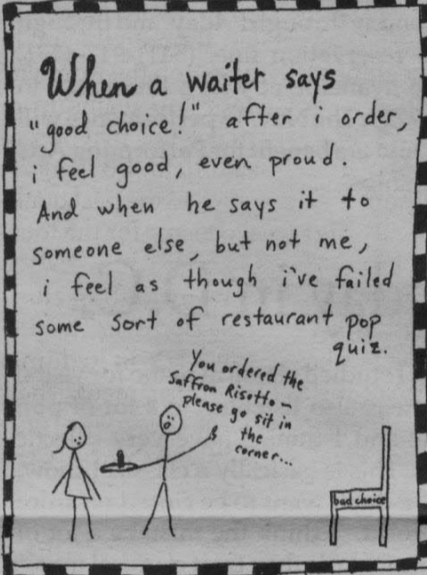 When a waiter says
"good choice!" after i order,
i feel good, even proud.
And when he says it to
someone else, but not me,
i feel as though i've failed
some sort of restaurant pop
quiz.
You ordered the
Saffron Risotto —
please go sit in
the
corner...
bad choice